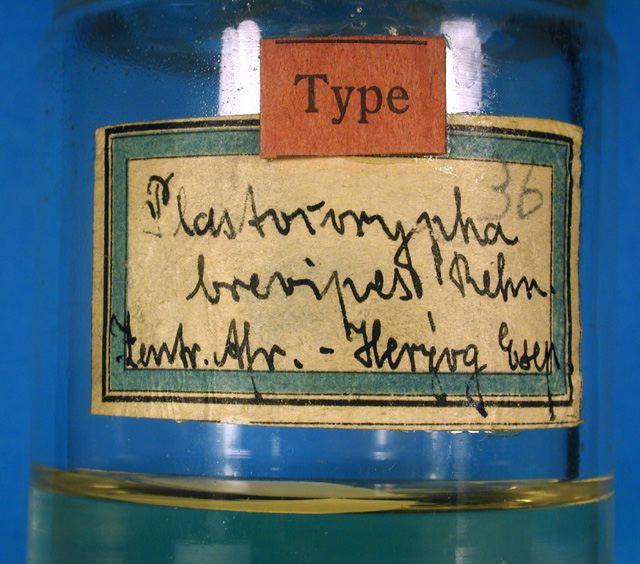 Type
36
Plastocorypha
brevipes Rehn.
Zentr. Afr. - Herzog Exep.